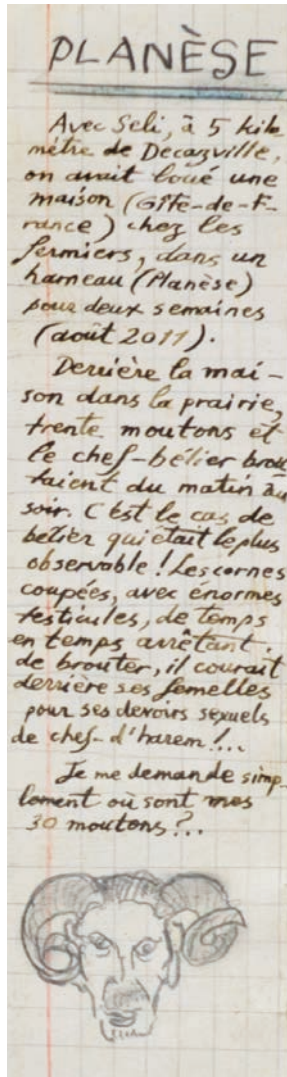 PLANÈSE
Avec Seli, à 5 kilo
mètre de Decazville,
on avait loué une
maison (Gîte-de-F-
rance) chez les
fermiers, dans un
hameau (Planèse)
pour deux semaines
(août 2011).
Derrière la mai-
son dans la prairie,
trente moutons et
le chef-bélier brou
taient du matin au
soir. C'est le cas de
bélier qui était le plus
observable ! Les cornes
coupées, avec énormes
testicules, de temps
en temps arrêtant
de brouter, il courait
derrière ses femelles
pour ses devoirs sexuels
de chef-d'harem !...
Je me demande simp-
lement où sont mes
30 moutons ?..